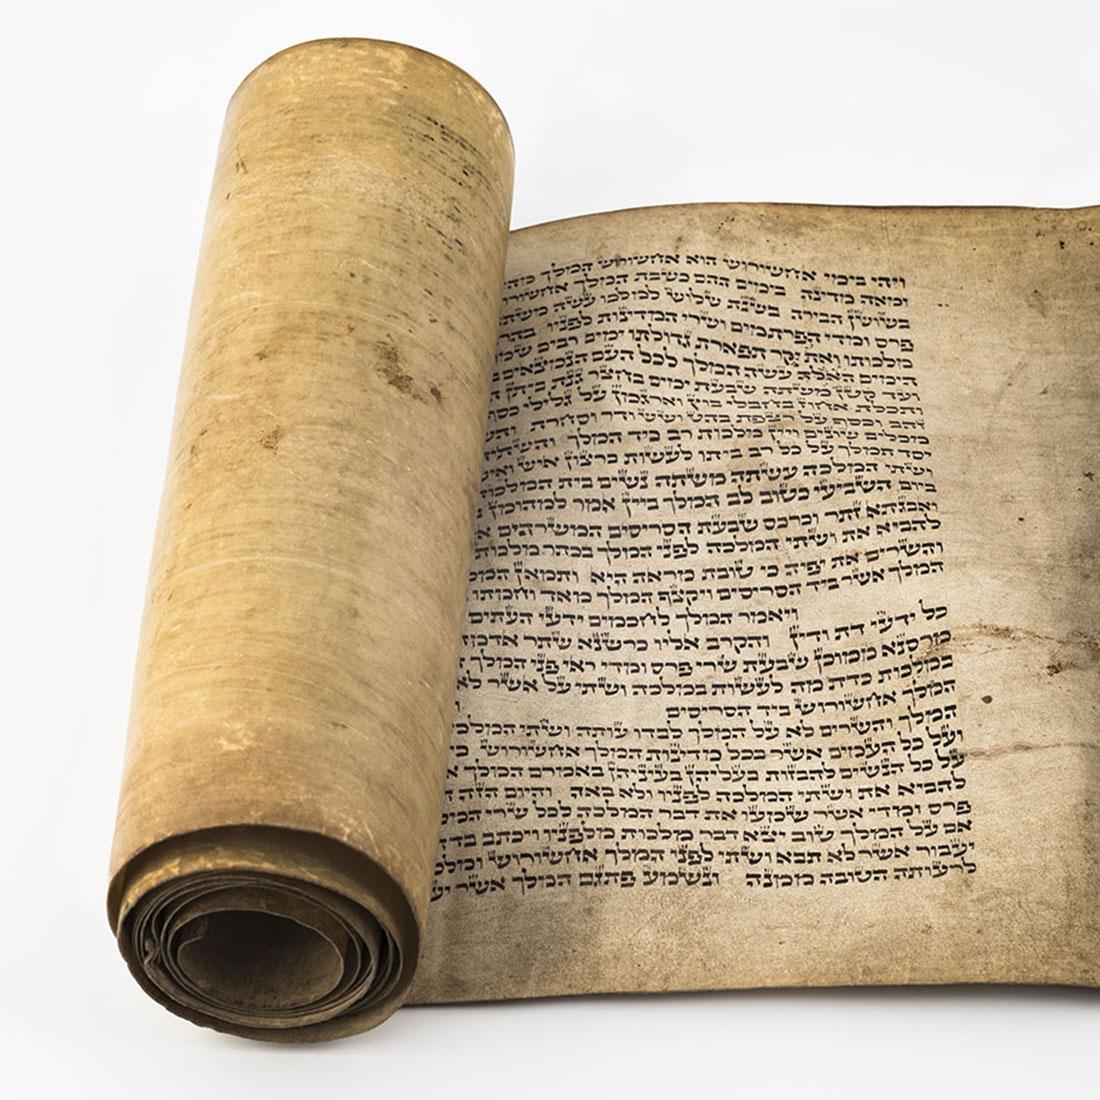 ויהי בימי אחשורוש הוא אחשורוש המלך מהדו
ומאה מדינה בימים ההם כשבת המלך אחשורוש
בשושן הבירה בשנת שלוש למלכו עשה משתה
פרס ומדי הפרתמים ושרי המדינות לפניו בהר
מלכותו ואת יקר תפארת גדולתו ימים רבים שמו
הימים האלה עשה המלך לכל העם הנמצאים ב
ועד קטן משתה שבעת ימים בחצר גנת ביתן ה
ותכלת אחוז בחבלי בוץ וארגמן על גלילי כסף
זהב וכסף על רצפת בהט ושש ודר וסחרת והש
מכלים שונים ויין מלכות רב כיד המלך והשתיה
יסד המלך על כל רב ביתו לעשות כרצון איש ואיש
ושתי המלכה עשתה משתה נשים בית המלכות
ביום השביעי כטוב לב המלך ביין אמר למהומן
ואבגתא זתר וכרכס שבעת הסריסים המשרתים א
להביא את ושתי המלכה לפני המלך בכתר מלכות
והשרים את יפיה כי טובת מראה היא ותמאן המל
המלך אשר ביד הסריסים ויקצף המלך מאד וחמתו
ויאמר המלך לחכמים ידעי העתים
כל ידעי דת ודין והקרב אליו כרשנא שתר אדמת
מרסנא ממוכן שבעת שרי פרס ומדי ראי פני המלך
במלכות כדת מה לעשות במלכה ושתי על אשר לא
המלך אחשורוש ביד הסריסים
המלך והשרים לא על המלך לבדו עותה ושתי המלכ
ועל כל העמים אשר בכל מדינות המלך אחשורוש כי
על כל הנשים להבזות בעליהן בעיניהן באמרם המלך
להביא את ושתי המלכה לפניו ולא באה והיום הזה
פרס ומדי אשר שמעו את דבר המלכה לכל שרי המל
אם על המלך טוב יצא דבר מלכות מלפניו ויכתב בדת
יעבור אשר לא תבוא ושתי לפני המלך אחשורוש ומלכ
לרעותה הטובה ממנה ונשמע פתגם המלך אשר יע